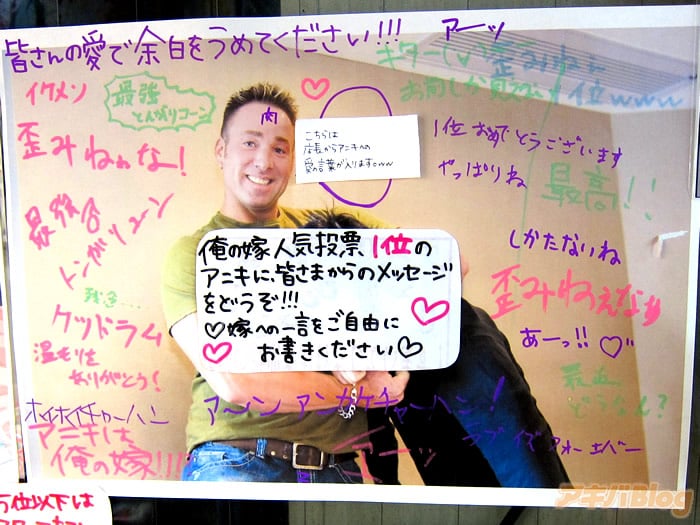 皆さんの愛で余白をうめてください!!!
アーッ
イケメン
最強
とんがりコーン
肉
こちらは
店長からアニキへの
愛の言葉が入りますww
1位おめでとうございます
やっぱりね
歪みねぇな!
最高!!
しかたないね
最強◎
トンガリコーン
俺の嫁人気投票1位の
アニキに、皆さまからのメッセージ
をどうぞ!!!
♡嫁への一言をご自由に
お書きください♡
歪みねぇなぁ
あーっ!!♡
ケツドラム
温もりを
ありがとう!
最近
どうなん?
ホイホイチャーハン
アーメン アンカケチャーハン!
アニキは
俺の嫁!!!
アーッ
ラブ イズ フォーエバー
5位以下は
アキバBlog